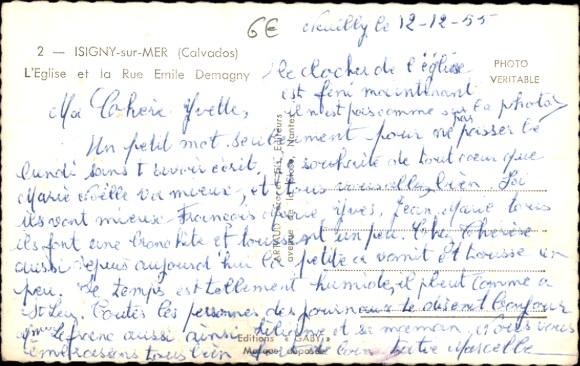 6€
Neuilly le 12-12-55
2 — ISIGNY-sur-MER (Calvados)
L'Eglise et la Rue Emile Demagny
PHOTO
VERITABLE
le clocher de l'église
est fini maintenant
il n'est pas comme sur la photo
Ma Chère Yvette,
Un petit mot seulement pour ne pas passer le
lundi sans t'avoir écrit. Je souhaite de tout cœur que
Marie Noëlle va mieux, et tous vous allez bien. Ici
ils vont mieux François, Yves, Jean Marie tous
ils font une bronchite et toussent un peu. Chez Thérèse
aussi depuis aujourd'hui la petite a vomit et tousse un
peu. Le temps est tellement humide, il pleut comme a
St Leu. Toutes les personnes des journaux te disent bonjour
Mme Lefranc aussi ainsi et sa maman. Nous vous
embrassons tous bien fort de loin Marcelle
ARTAUD Père et Fils, Editeurs
avenue de la Nantes
Editions "GABY"
Marque déposée